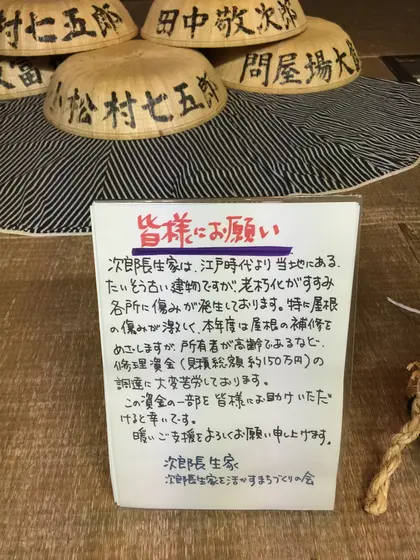 村七五郎
田中敬次郎
富
小松村七五郎
問屋場大
皆様にお願い
次郎長生家は、江戸時代より当地にある、
たいそう古い建物ですが、老朽化がすすみ
各所に傷みが発生しております。特に屋根
の傷みが激しく、本年度は屋根の補修を
めざしますが、所有者が高齢であるなど、
修理資金(見積総額約150万円)の
調達に大変苦労しております。
この資金の一部を皆様にお助けいただ
けると幸いです。
暖いご支援をよろしくお願い申し上げます。
次郎長生家
次郎長生家を活かすまちづくりの会